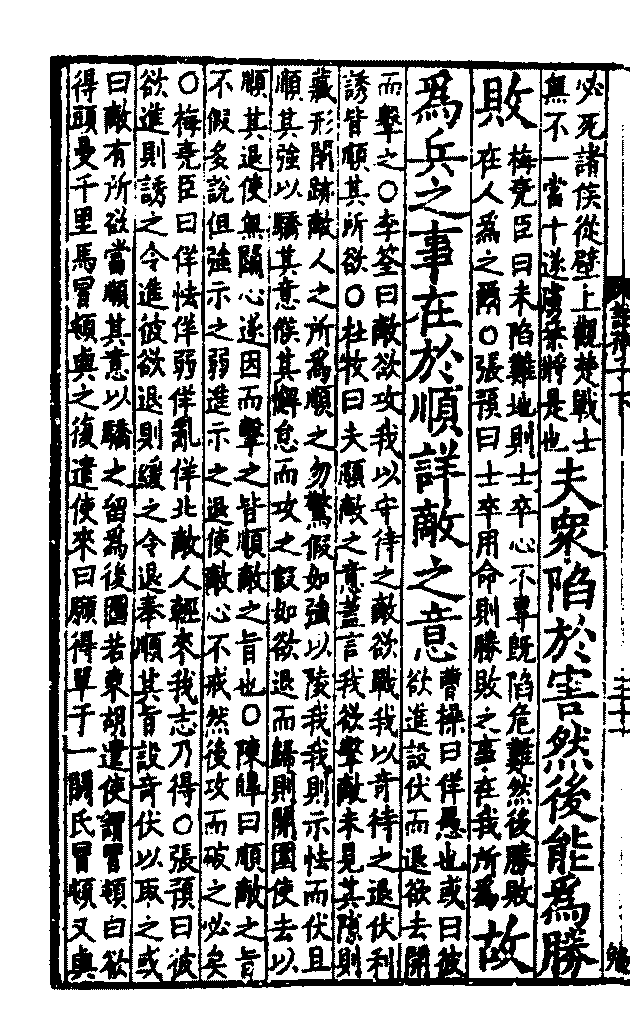 必死諸侯從壁上觀楚戰士
無不一當十遂虜秦將是也
夫衆陷於害然後能爲勝
敗
梅堯臣曰未陷難地則士卒心不專旣陷危難然後勝敗
在人爲之爾○張預曰士卒用命則勝敗之事在我所爲
故
爲兵之事在於順詳敵之意
曹操曰佯愚也或曰彼
欲進設伏而退欲去開
而擊之○李筌曰敵欲攻我以守待之敵欲戰我以奇待之退伏利
誘皆順其所欲○杜牧曰夫順敵之意蓋言我欲擊敵未見其隙則
藏形閉跡敵人之所爲順之勿驚假如強以陵我我則示怯而伏且
順其強以驕其意候其懈怠而攻之假如欲退而歸則開圍使去以
順其退使無鬬心遂因而擊之皆順敵之旨也○陳皥曰順敵之旨
不假多說但強示之弱進示之退使敵心不戒然後攻而破之必矣
○梅堯臣曰佯怯佯弱佯亂佯北敵人輕來我志乃得○張預曰彼
欲進則誘之令進彼欲退則緩之令退奉順其旨設奇伏以取之或
曰敵有所欲當順其意以驕之留爲後圖若東胡遣使謂冒頓曰欲
得頭曼千里馬冒頓與之復遣使來曰願得單于一閼氏冒頓又與